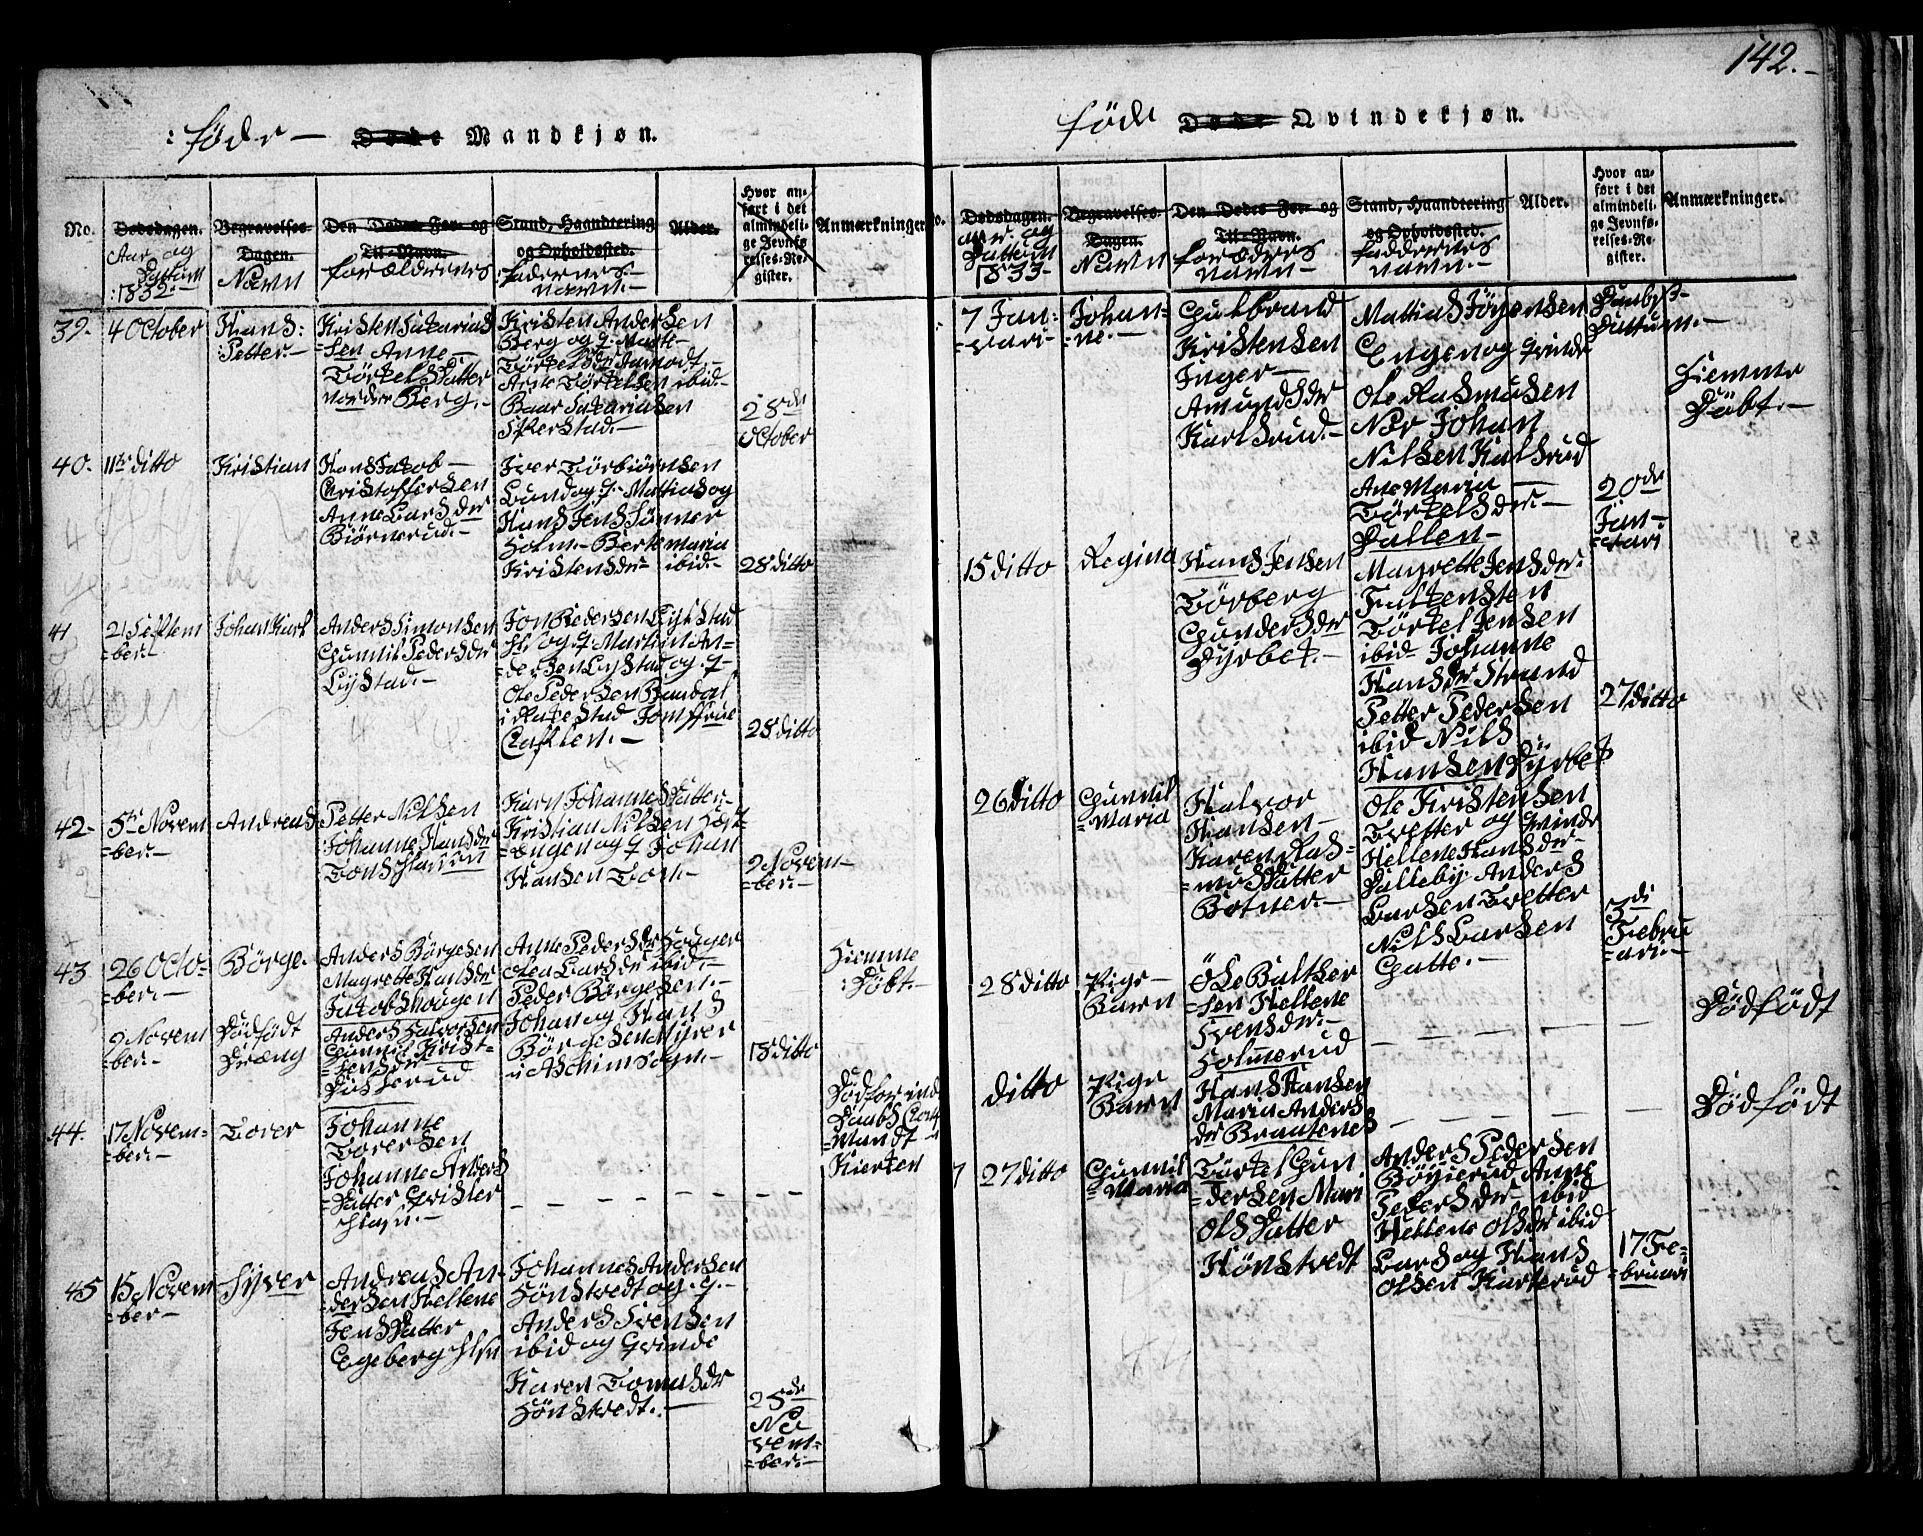 142.
føde — Døde Mandkjøn.
No.
Dødsdagen.
Aar og
Dattum
1832.
Begravelses-
Dagen.
Navn
Den Dødes For- og
Til-Navn.
forældernes
Stand, Haandtering
og Opholdssted.
faddernes
navn.
Alder.
Hvor an-
ført i det
almindeli-
ge Jevnfø-
relses-Re-
gister.
Anmærkninger.
39. 4 October
Hans
Petter.
Kristen Sakarias
sen Anne
Törkels Datter
nordre Berg.
Kristen Andersen
Berg og q. Marte
Törkels Dtr Aamodt
Anne Törkelsen ibid.
Baar Sakariasen
Sikerstad.
28de
October
40. 11te ditto
Kristian
Hans Jakob
Christoffersen
Anne Lars dr
Biörnerud.
Iver Törbiörnsen
Lund og q. Mattias og
Hans Jens Sönner
Holm. Berte maria
Kristensdr ibid.
28 ditto
41 21 Septem
ber.
Johan Karl
Anders Simonsen
Gunnil Peders dr
Lystad.
Jon Pedersen Lykstad
og q. Martin An-
dersen Lystad og q.
Ole Pedersen Bandal
i Rakestad Jomffrue
28 ditto
42. 5te Novem
ber.
Andreas
Petter Nilsen
Johanne Hans dr
Karn Johannes Datter.
Kristian Nilsen Väst
Engen og q Johan
Hansen Torn.
2 Novem
ber.
43 26 Octo-
ber.
Börge
Anders Börgesen
Magrette Hans dr
Jakobs hougen
Anne Peders dr Houger
Olea Lars dr ibid.
Peder Börgesen.
Johan og Hans
Börgesen Myrer
i Aschim sogn.
18 ditto
Hiemme
Döbt.
2 Novem
ber.
Dödfödt
Dræng
Anders Halvorsen
Gunnil Krist-
ensdr
Dusterud
44. 17 Novem-
ber.
Tover
Johanne
Toversen
Johanne Anders
Datter
Död for ind
Daabs
45 15 Novem
ber
Syver
Andreas An-
dersen Hellene
Jens Datter
Egeberg
Johannes Andersen
Hönstvedt og q.
Anders Svensen
ibid og Qvinde
Karen Tomasdr
Hönstvedt.
25de
No
vem-
ber.
føde Døde Qvindekjøn.
Dødsdagen.
Aar. og
Dattum
1833.
Begravelses-
Dagen.
Navn
Den Dødes For- og
Til-Navn.
forælders
navn.
Stand, Haandtering
og Opholdssted.
faddernes
navn.
Alder.
Hvor an-
ført i det
almindeli-
ge Jevnfø-
relses-Re-
gister.
Anmærkninger.
Daabs-
Dattum.
7 Jan-
vari
Johan-
ne.
Gulbrand
Kristensen
Inger
Amunds dr
Karlsrud.
Mattias Jörgensen
Engen og Qvinde
Ole Rasmusen
Nör Johan
Nilsen Kalsrud
Ane Maria
Törkels dr.
Dallen
20de
Jan-
vari
Hiemme
Döbt.
15 ditto
Regina
Hans Jensen
Törberg
Gunders dr
Dyrbet.
Magrette Jens dr.
Falkensten
Törkel Jensen
ibid Johanne
Hans dr Strand
Petter Pedersen
ibid Nils
Hansen Dyrbet
27 ditto
26 ditto
Gunnil
Maria
Halvor
Hansen
Karen Ras-
mus Datter
Botner.
Ole Kristensen
Tvetter og Qvinde
Hellene Hans dr.
Dalleby Anders
Larsen Tvetter
Nils Larsen
Gatte.
3di
Febru
ari.
28 ditto
Pige
Barn
Ole Balther
sen Hellene
Svens dr.
Holmerud
Dödfödt
ditto
Pige
Barn
Hans Hansen
Maria Anders
dr Braatenes
Dödfödt
7 27 ditto
Gunnil
Maria
Törkel Gun
dersen Mari
Ols Datter
Hönstvedt
Anders Pedersen
Böyierud Anne
Peders dr ibid
Hellene Ols dr ibid
Lars og Hans
Olsen Karterud
17 Fe-
bruari